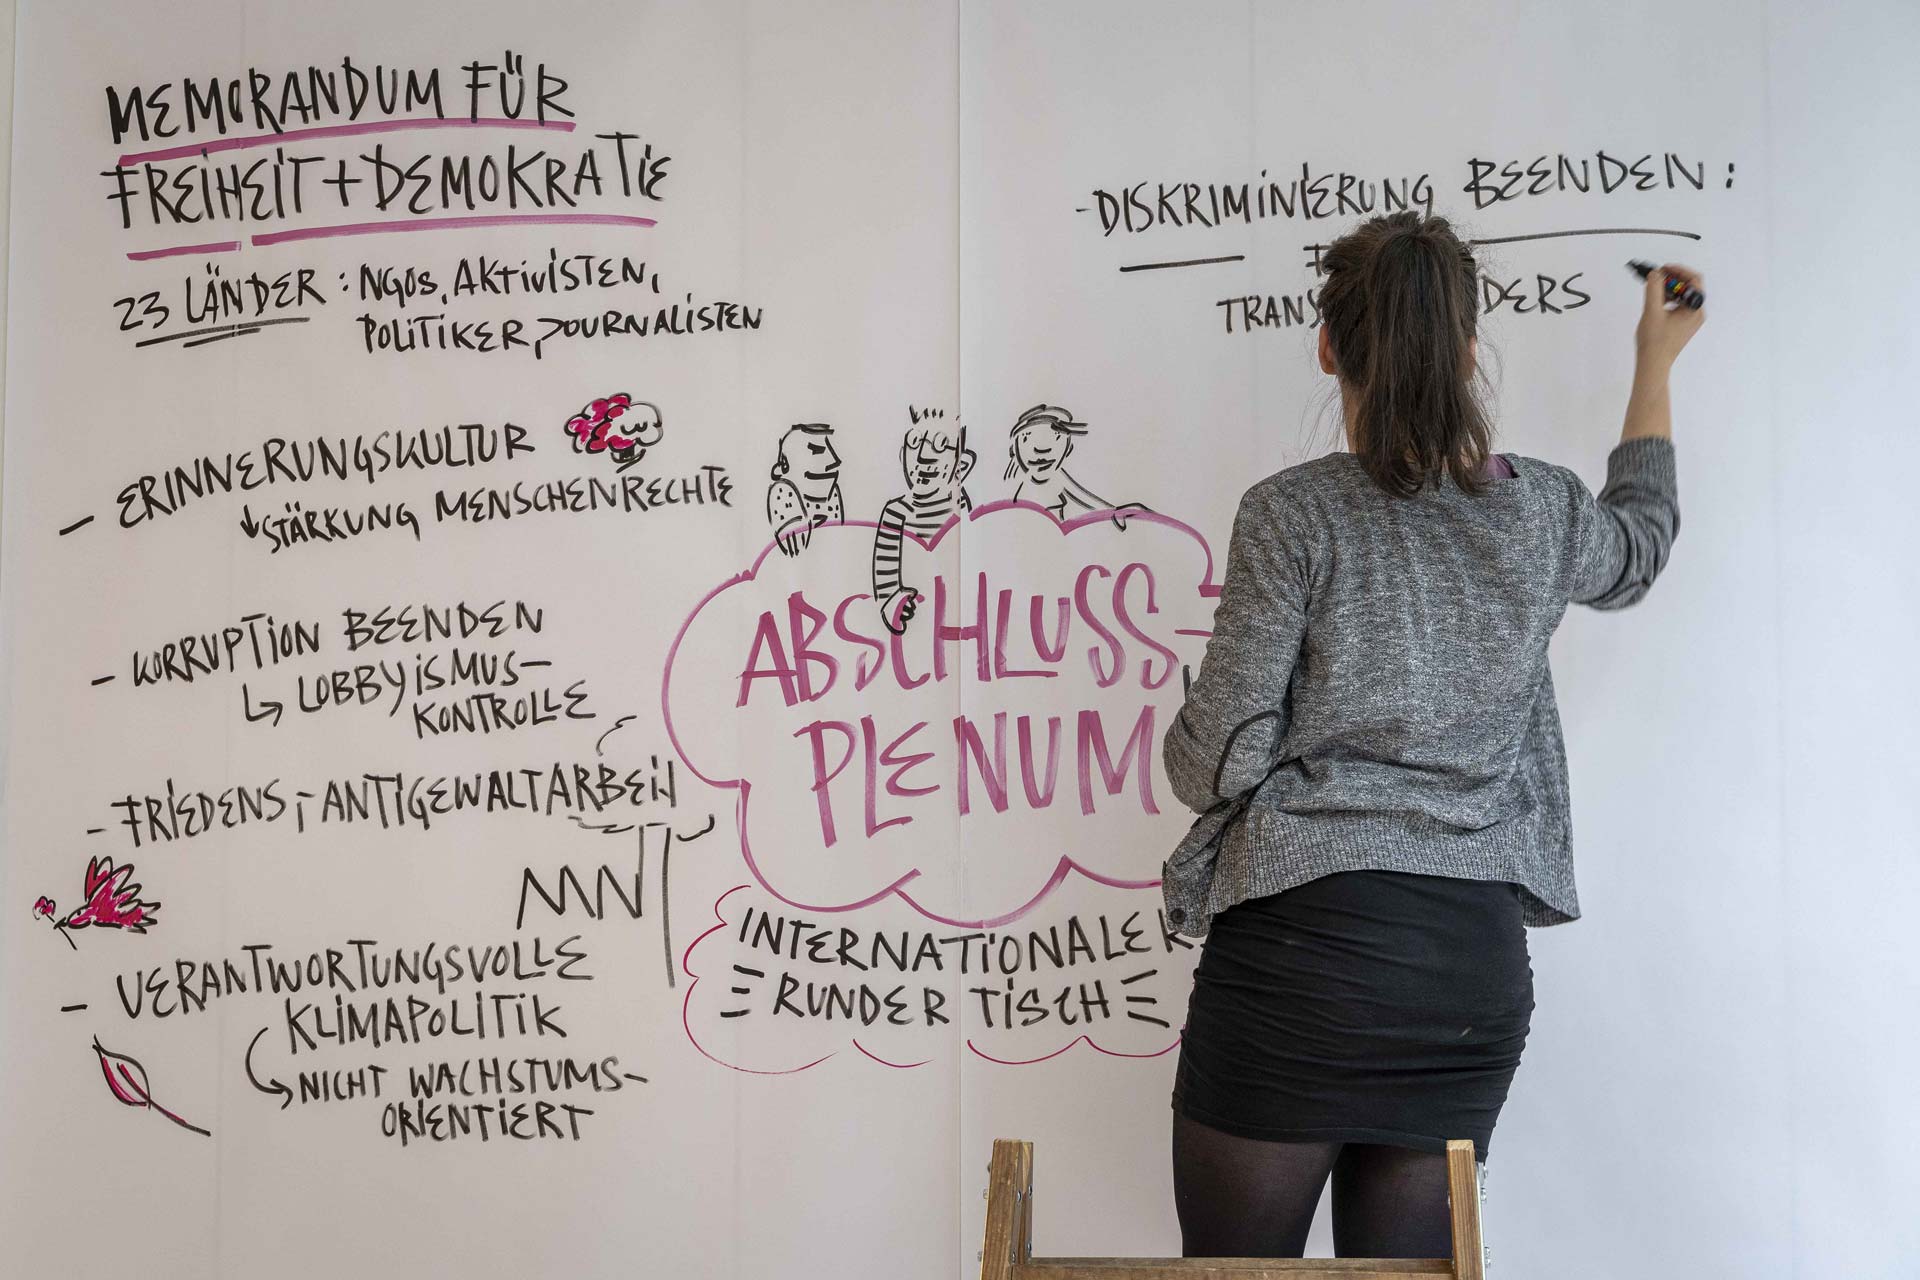 MEMORANDUM FÜR
FREIHEIT + DEMOKRATIE
23 LÄNDER : NGOS, AKTIVISTEN,
POLITIKER, JOURNALISTEN
- ERINNERUNGSKULTUR
STÄRKUNG MENSCHENRECHTE
- KORRUPTION BEENDEN
LOBBYISMUS-
KONTROLLE
- FRIEDENS, -ANTIGEWALTARBEIT
- VERANTWORTUNGSVOLLE
KLIMAPOLITIK
NICHT WACHSTUMS-
ORIENTIERT
ABSCHLUSS-
PLENUM
INTERNATIONALER
RUNDER TISCH
- DISKRIMINIERUNG BEENDEN :
TRANS DERS